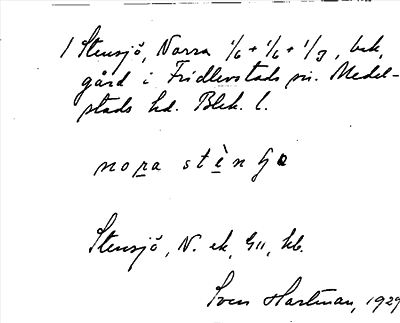 1 Stensjö, Norra 1/6 + 1/6 + 1/3, bek.
gård i Fridlevstads sn. Medel-
stads hd. Blek. l.
nora stèn
Stensjö, N. ek, hb.
Sven Hartman, 1929